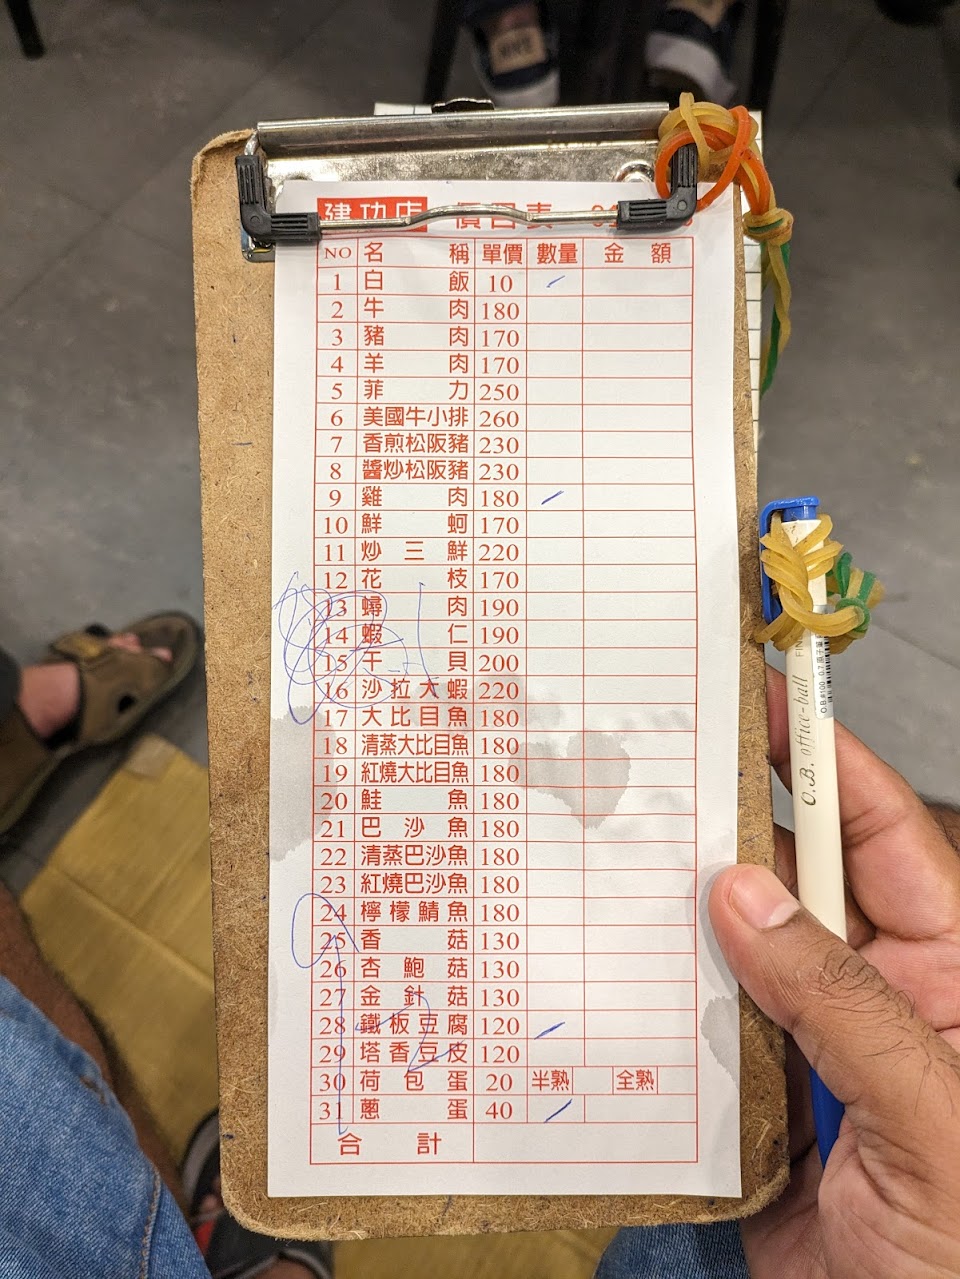 建功店 價目表
NO 名稱 單價 數量 金額
1 白飯 10
2 牛肉 180
3 豬肉 170
4 羊肉 170
5 菲力 250
6 美國牛小排 260
7 香煎松阪豬 230
8 醬炒松阪豬 230
9 雞肉 180
10 鮮蚵 170
11 炒三鮮 220
12 花枝 170
13 蟳肉 190
14 蝦仁 190
15 干貝 200
16 沙拉大蝦 220
17 大比目魚 180
18 清蒸大比目魚 180
19 紅燒大比目魚 180
20 鮭魚 180
21 巴沙魚 180
22 清蒸巴沙魚 180
23 紅燒巴沙魚 180
24 檸檬鯖魚 180
25 香菇 130
26 杏鮑菇 130
27 金針菇 130
28 鐵板豆腐 120
29 塔香豆皮 120
30 荷包蛋 20 半熟 全熟
31 蔥蛋 40
合計
O.B. office-ball